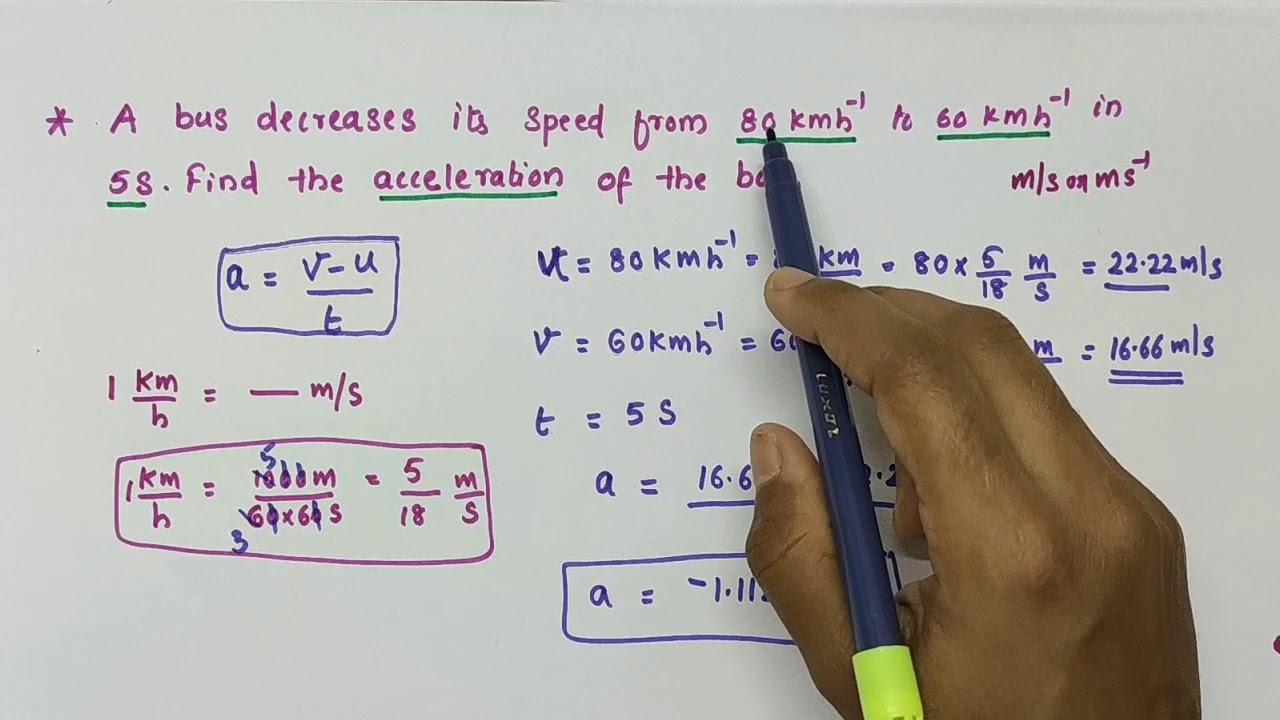 * A bus decreases its speed from 80 kmh⁻¹ to 60 kmh⁻¹ in
5s. Find the acceleration of the
m/s or ms⁻¹
a = v-u/t
1 km/h = — m/s
1 km/h = 1000m/60×60 s = 5/18 m/s
5
3
u = 80 kmh⁻¹ = km = 80 × 5/18 m/s = 22.22 m/s
v = 60 kmh⁻¹ = 60 m = 16.66 m/s
t = 5 s
a = 16.6
a = -1.11
LUXOR